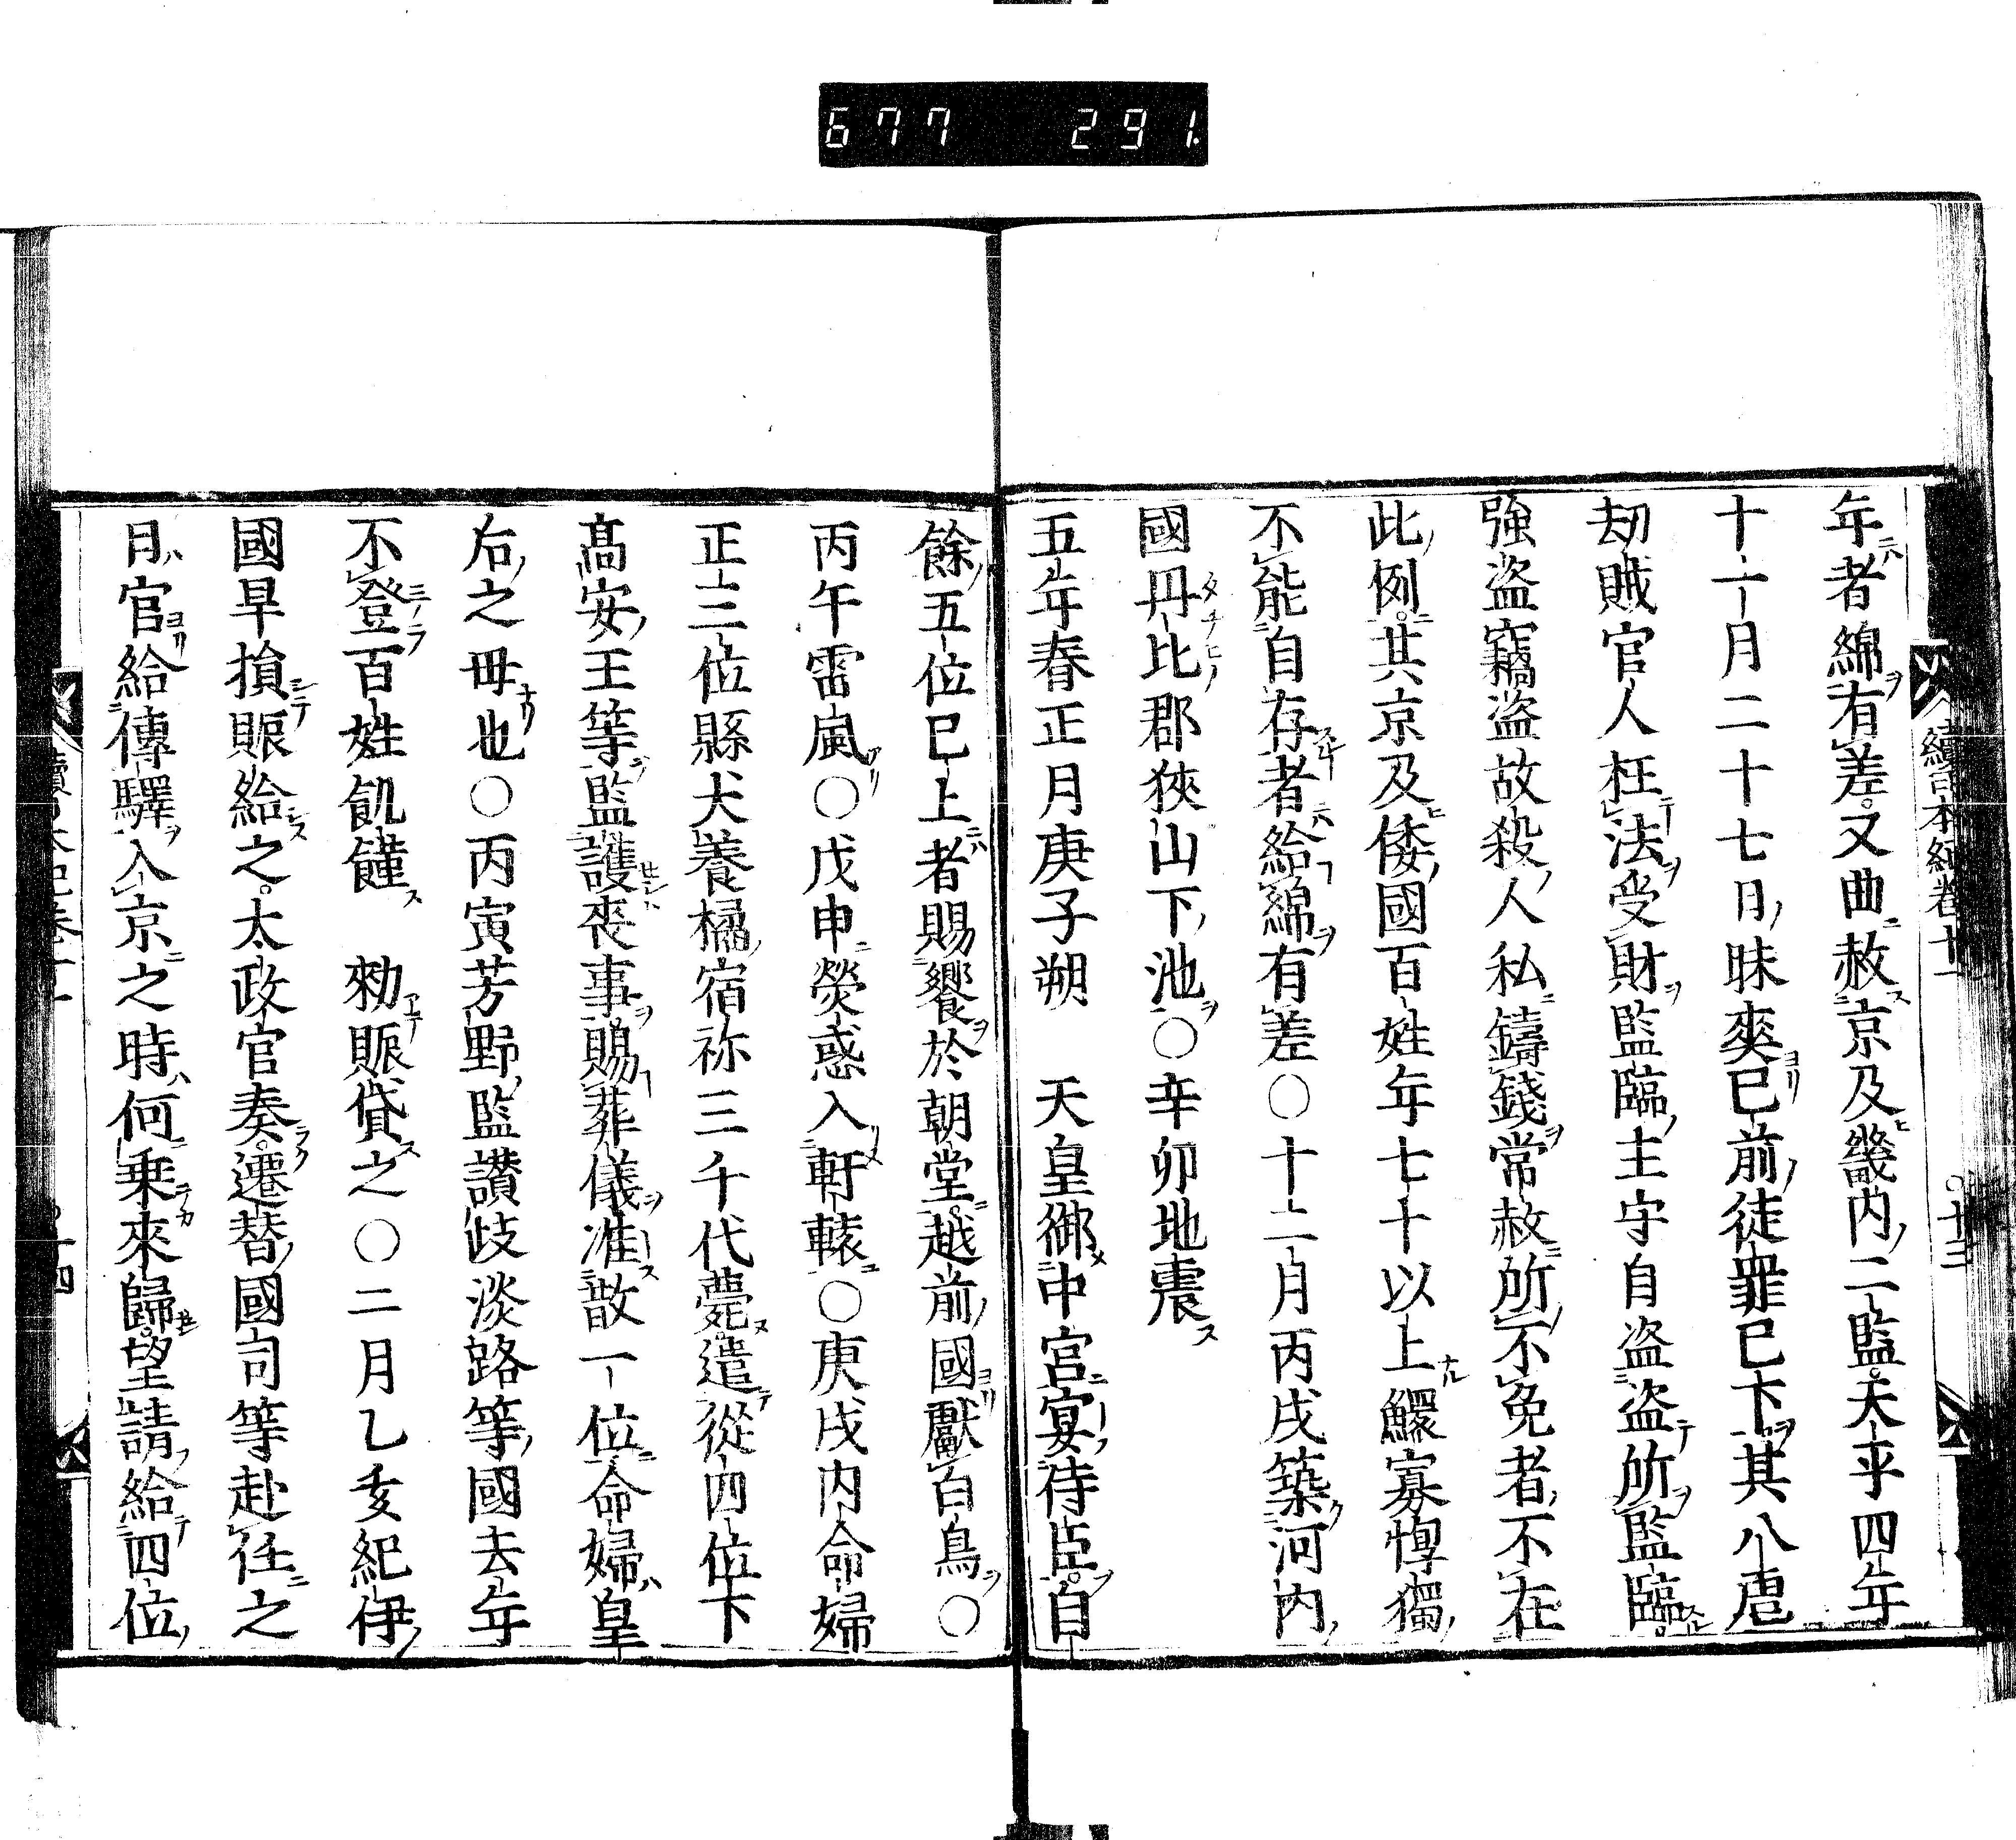 677 291
續日本紀卷十一 十三
年者綿有差又曲赦京及畿內二監天平四年
十一月二十七日昧爽已前徒罪已下其八虐
劫賊官人枉法受財監臨主守自盜盜所監臨
強盜竊盜故殺人私鑄錢常赦所不免者不在
此例其京及倭國百姓年七十以上鰥寡惸獨
不能自存者給綿有差○十二月丙戌築河內
國丹比郡狹山下池○辛卯地震
五年春正月庚子朔 天皇御中宮宴侍臣自
餘五位已上者賜饗於朝堂越前國獻白鳥○
丙午雷風○戊申熒惑入軒轅○庚戌內命婦
正三位縣犬養橘宿祢三千代薨遣從四位下
髙安王等監護喪事賜葬儀准散一位命婦皇
后之毋也○丙寅芳野監讚岐淡路等國去年
不登百姓飢饉 勑賑貸之○二月乙亥紀伊
國旱損賑給之太政官奏遷替國司等赴任之
月官給傳驛入京之時何乗來歸望請給四位